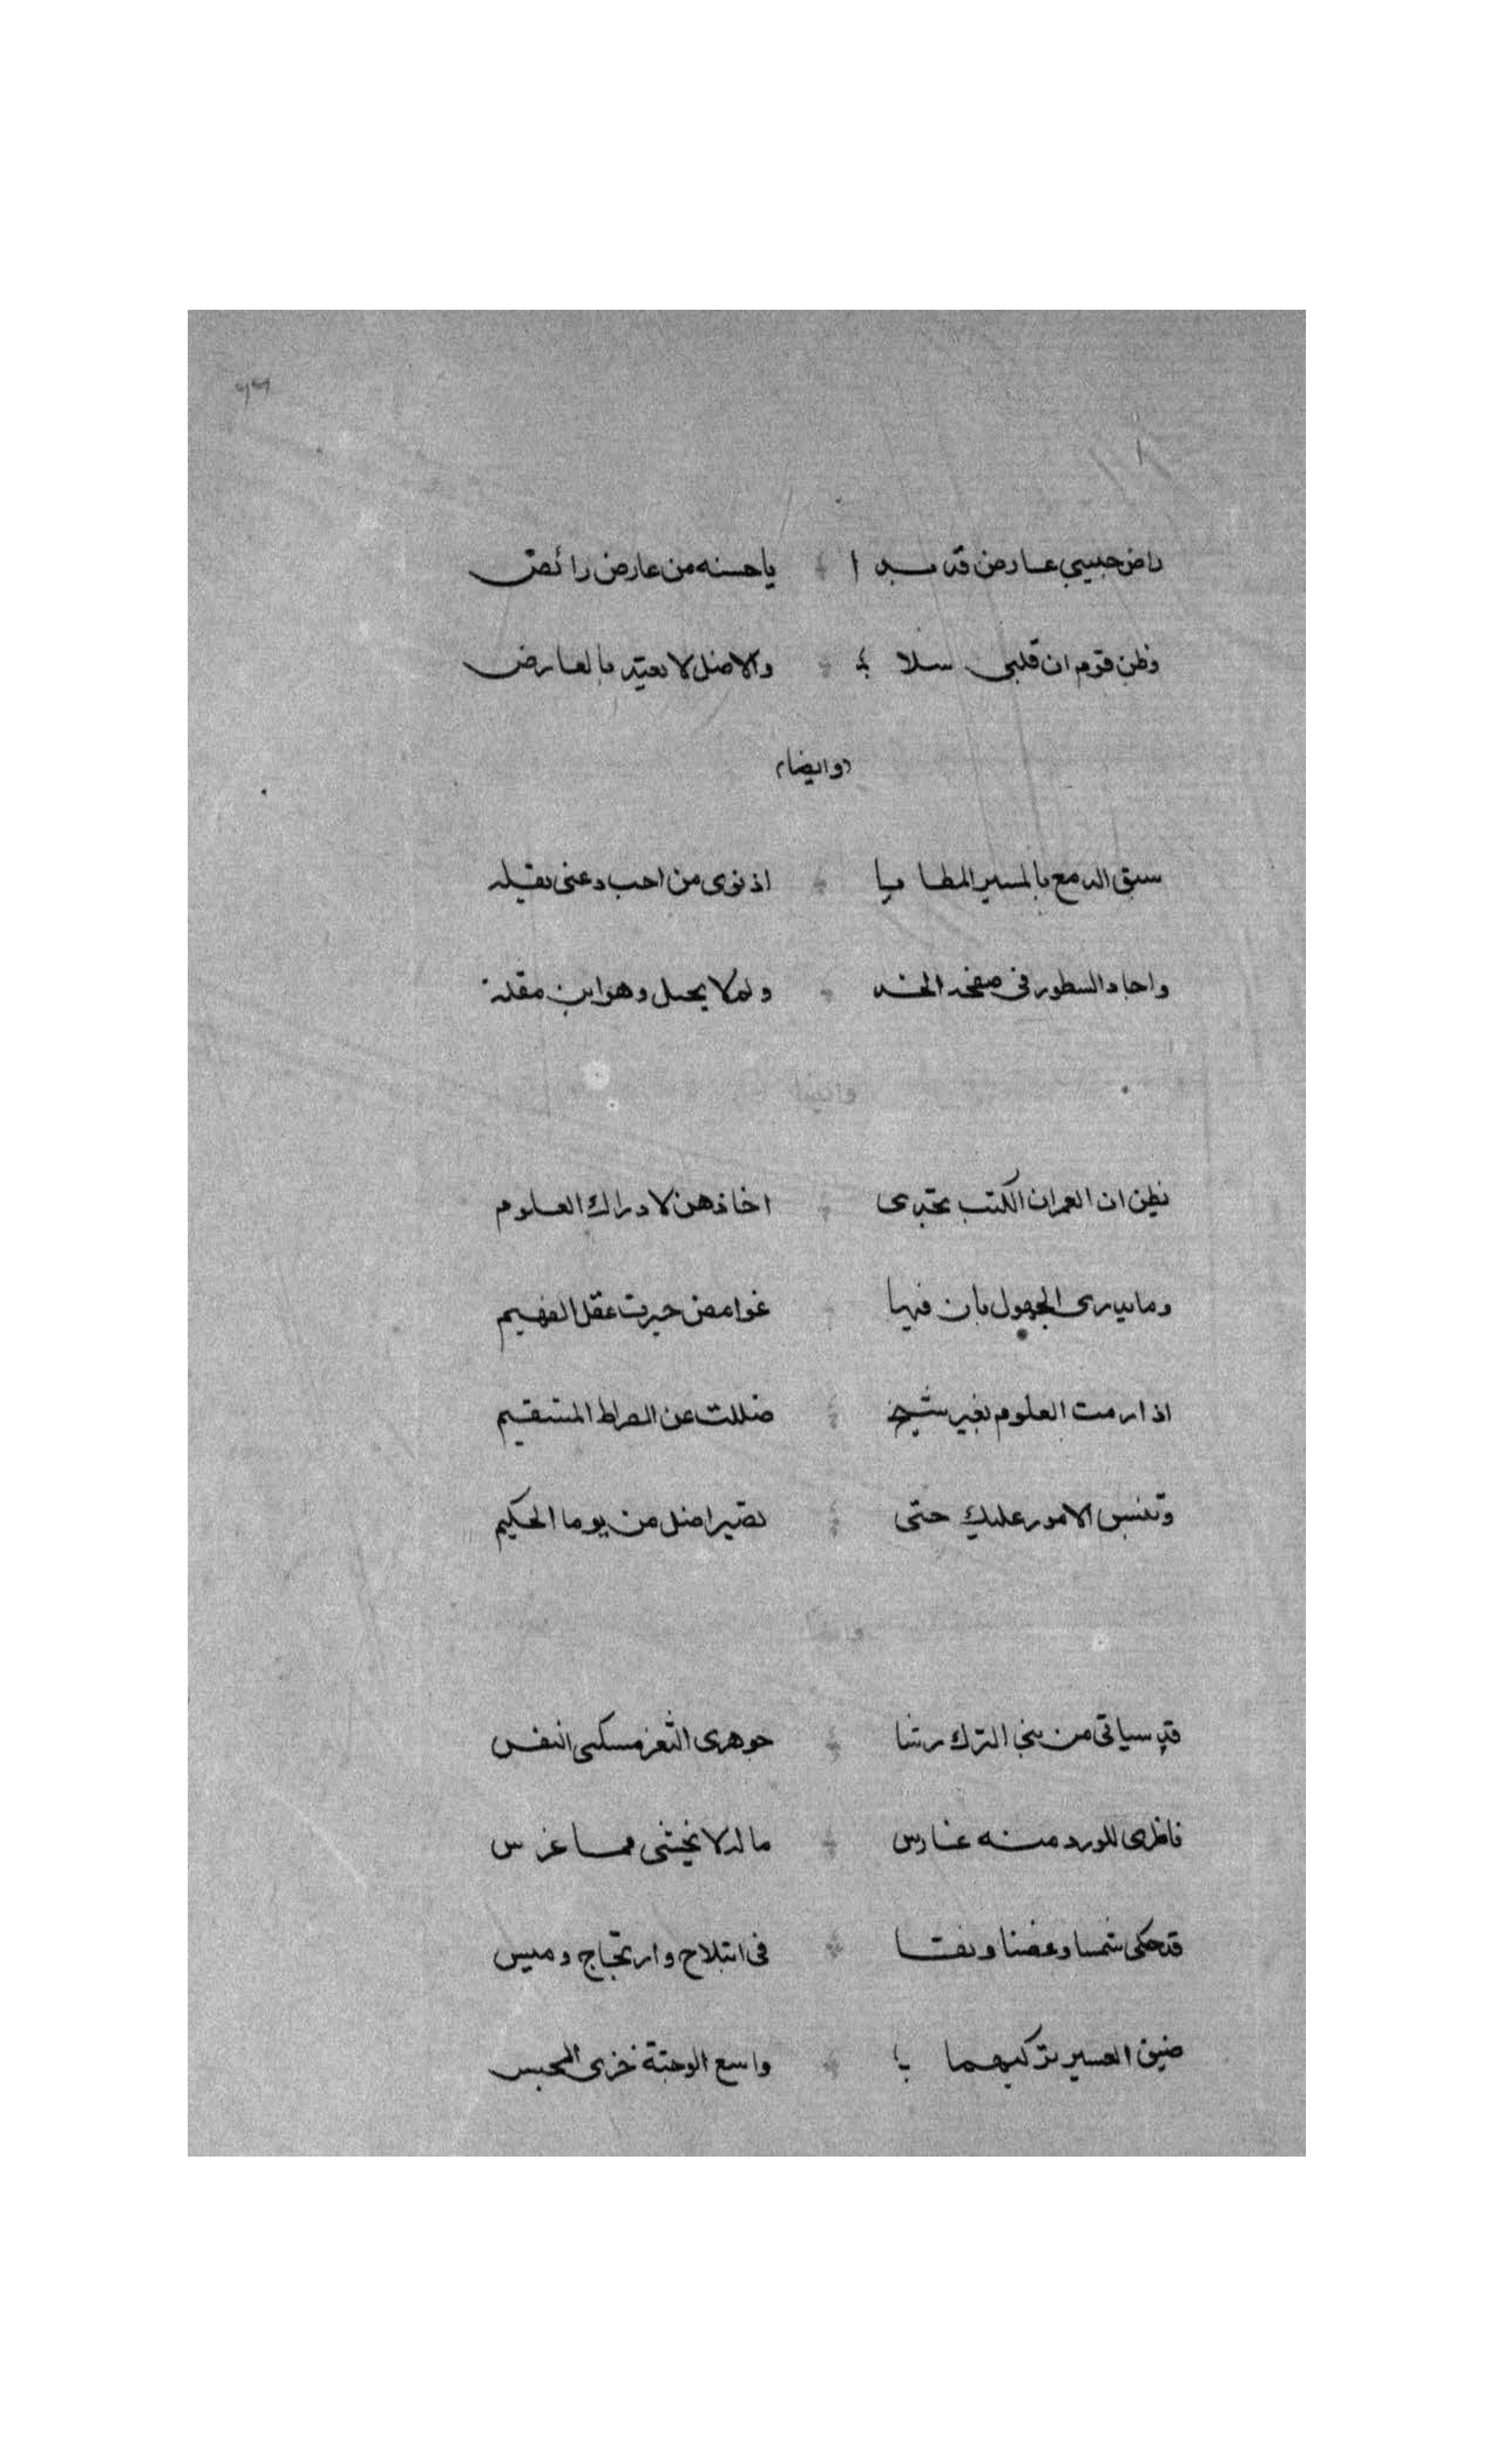 ٩٩
راض حبيبي عارض قد بدا يا حسنه من عارض رائض
وظن قوم ان قلبي سلا والاصل لا يعتد بالعارض
وايضا
سبق الدمع بالمسير المطايا اذ نوى من احب عنى نقله
واجاد السطور فى صفحة الخد ولم لا يجيد وهو ابن مقلة
وايضا
يظن الغمر ان الكتب تجدى اخا ذهن لادراك العلوم
وما يدرى الجهول بان فيها غوامض حيرت عقل الفهيم
اذا رمت العلوم بغير شيخ ضللت عن الصراط المستقيم
وتلتبس الامور عليك حتى تصير اضل من يوما الحكيم
من بنى الترك رشا جوهرى الثغر مسكى النفس
ناظرى للورد منه غارس ماله لا يجتنى مما غرس
قد حكى شمسا وغصنا ونقا فى ابتلاج وارتجاج وميس
ضيق العين تركيهما واسع الوجنة خزى المجس